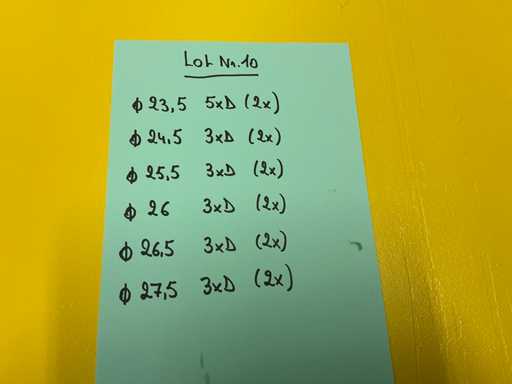 Lot Nr.10
ϕ 23,5 5xD (2x)
ϕ 24,5 3xD (2x)
ϕ 25,5 3xD (2x)
ϕ 26 3xD (2x)
ϕ 26,5 3xD (2x)
ϕ 27,5 3xD (2x)